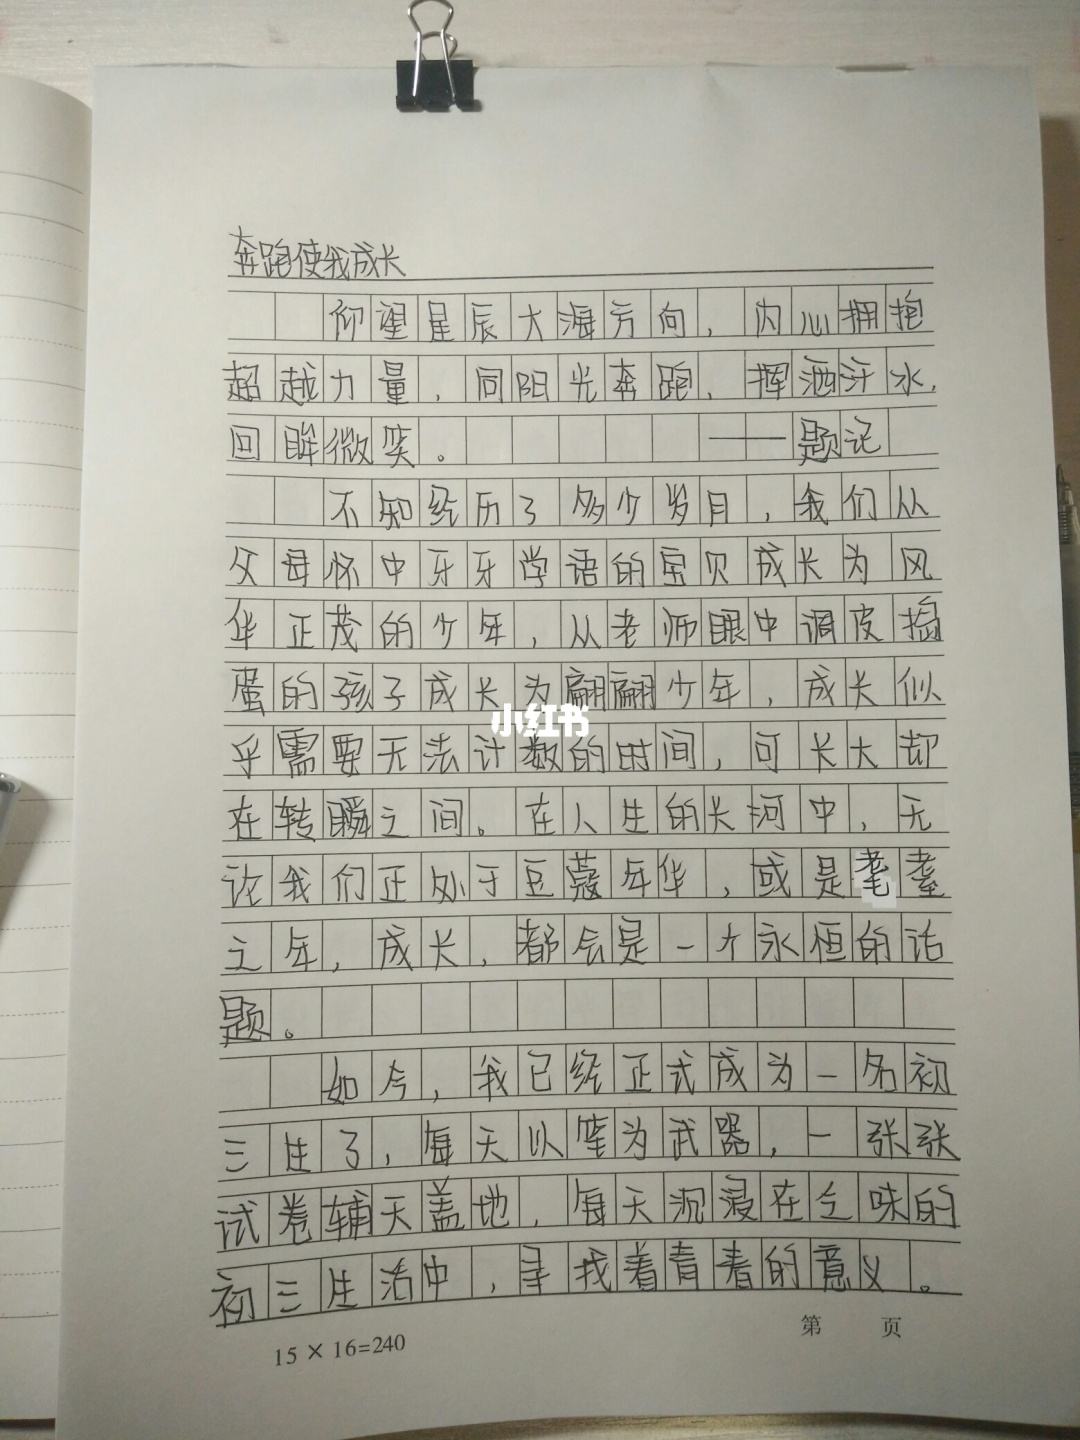 奔跑使我成长
仰望星辰大海方向，内心拥抱
超越力量，向阳光奔跑，挥洒汗水，
回眸微笑。——题记
不知经历了多少岁月，我们从
父母怀中牙牙学语的宝贝成长为风
华正茂的少年，从老师眼中调皮捣
蛋的孩子成长为翩翩少年，成长似
小红书
乎需要无法计数的时间，可长大却
在转瞬之间。在人生的长河中，无
论我们正处于豆蔻年华，或是耄耋
之年，成长，都会是一个永恒的话
题。
如今，我已经正式成为一名初
三生了，每天以笔为武器，一张张
试卷辅天盖地，每天沉浸在乏味的
初三生活中，寻找着青春的意义。
15×16=240
第 页